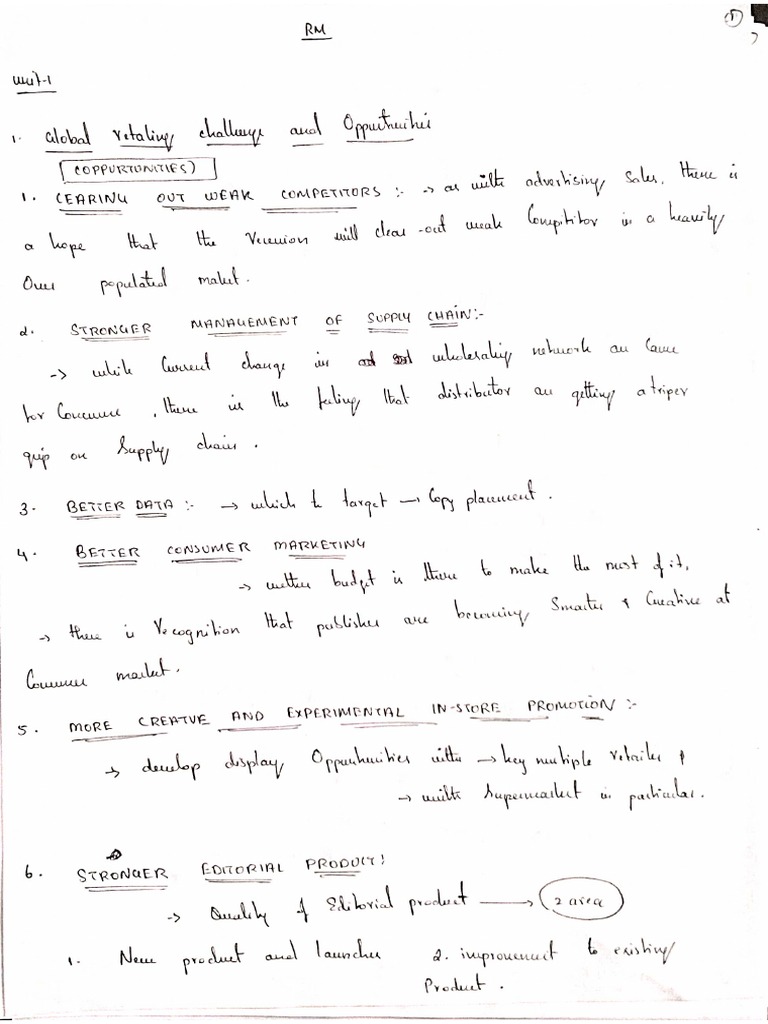 1
RM
Unit-1
1. Global retaling challenge and Oppurtunities
(OPPURTUNITIES)
1. CEARING OUT WEAK COMPETITORS :- → as with advertising sales, there is
a hope that the will clear-out weak Compititor in a heavily
Over populated market.
2. STRONGER MANAGEMENT OF SUPPLY CHAIN:-
→ while Current change in wholesaling network are
for Concern, there is the feeling that distributor are getting a
grip on Supply chain.
3. BETTER DATA :- → which to target → Copy placement.
4. BETTER CONSUMER MARKETING
→ budget is there to make the most of it,
→ there is recognition that publisher are becoming Smarter & Creative at
market.
5. MORE CREATIVE AND EXPERIMENTAL IN-STORE PROMOTION :-
→ develop display Oppurtunities with → key multiple retailer &
→ with Supermarket in particular.
6. STRONGER EDITORIAL PRODUCT:
→ Quality of Editorial product → 2 area
1. New product and launches 2. improvement to existing
Product.